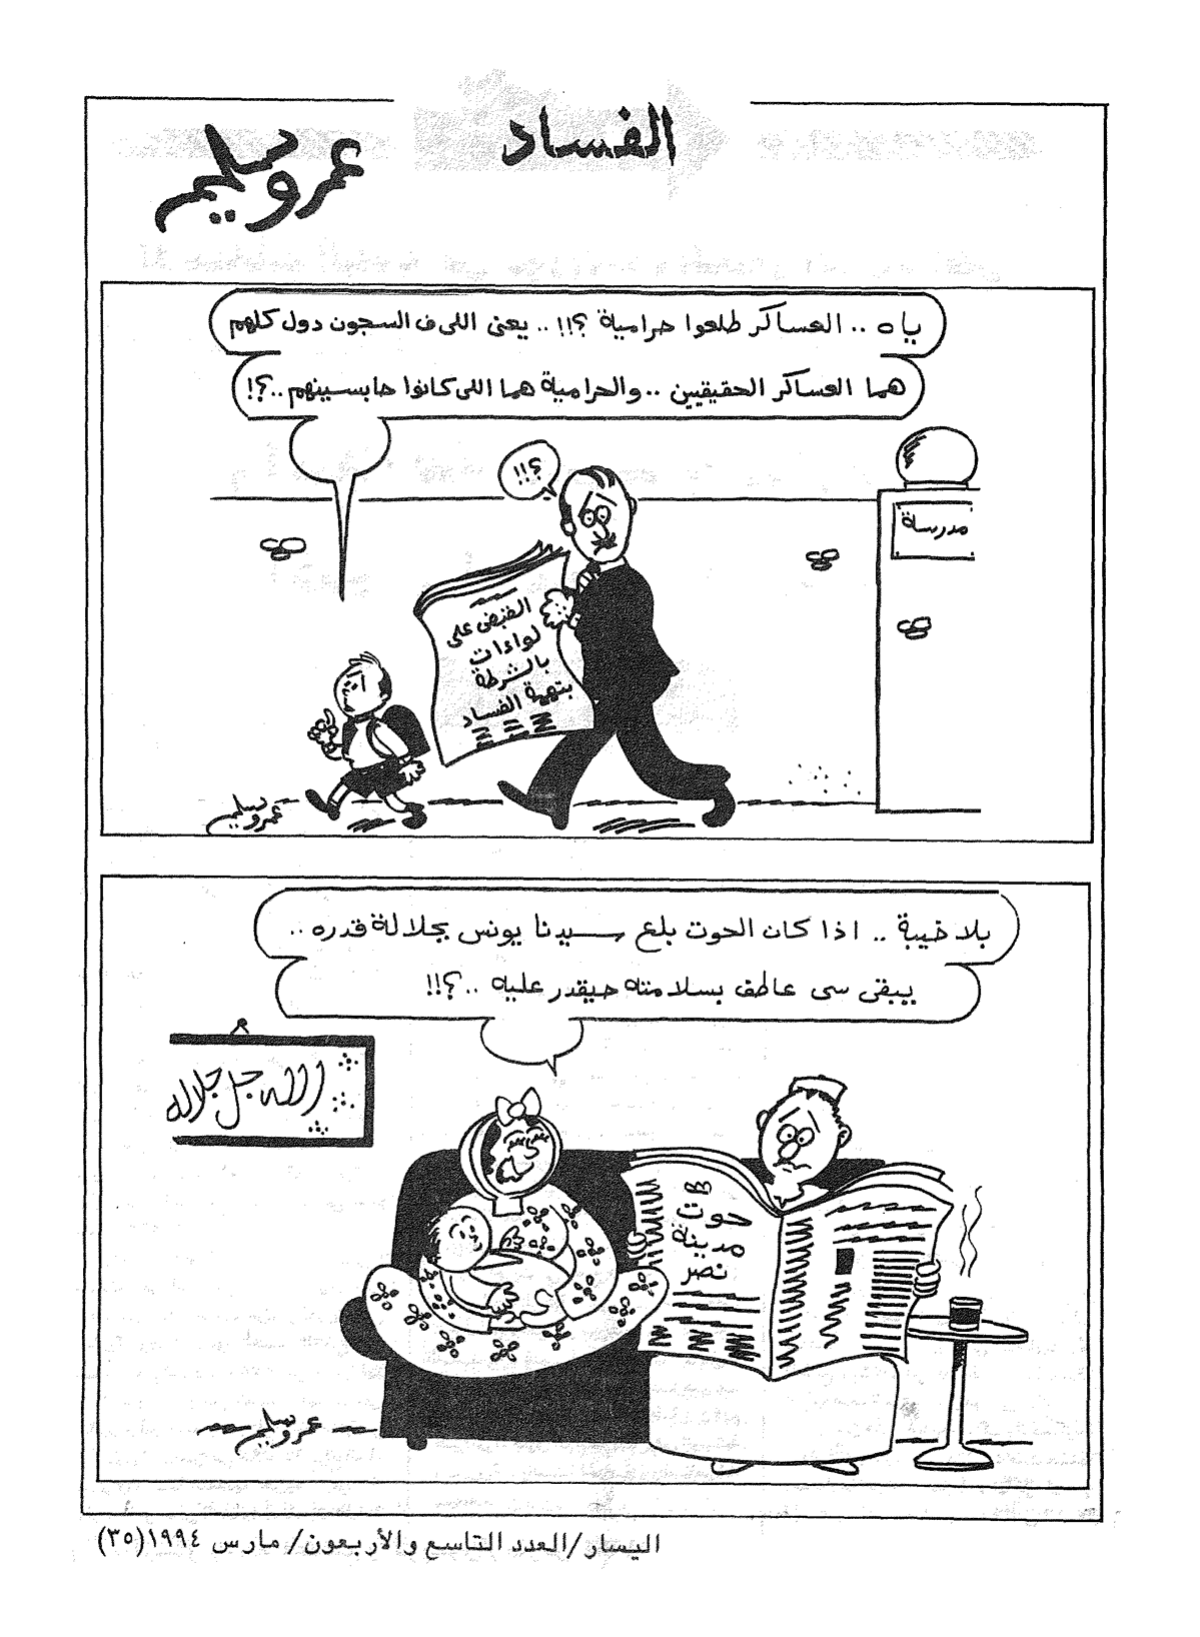 الفساد
عمرو سليم
ياه .. العساكر طلعوا حرامية ؟!! .. يعنى اللى ف السجون دول كلهم
هما العساكر الحقيقيين .. والحرامية هما اللى كانوا حابسينهم ..؟!
؟!!
مدرسة
القبض على
لواءات
بالشرطة
بتهمة الفساد
عمرو سليم
بلا خيبة .. اذا كان الحوت بلع سيدنا يونس بجلالة قدره ..
يبقى سى عاطف بسلامته حيقدر عليه ..؟!!
الله جل جلاله
حوت
مدينة
نصر
عمرو سليم
اليسار/العدد التاسع والأربعون/ مارس ١٩٩٤(٣٥)